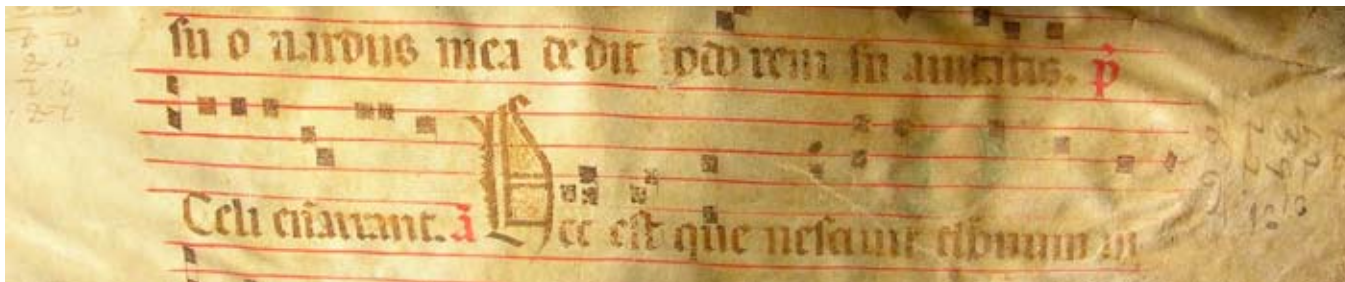 su o nardus mea dedit odo rem su auitatis. p̃
Celi en̄arrant. ā Hec est que nesciuit thorum in